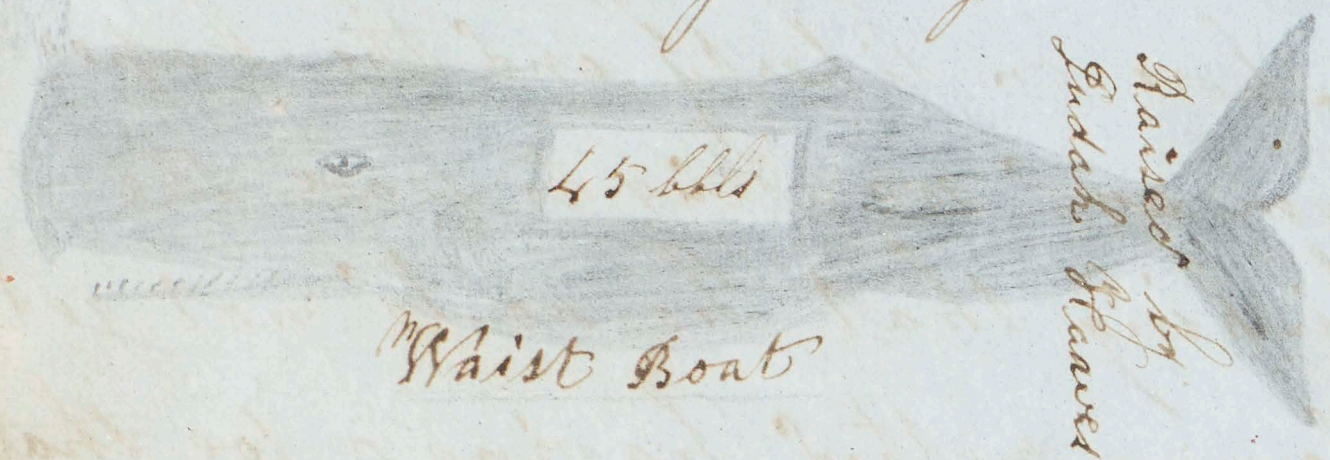 45 bbls
Waist Boat
Raised by
Judah Hawes